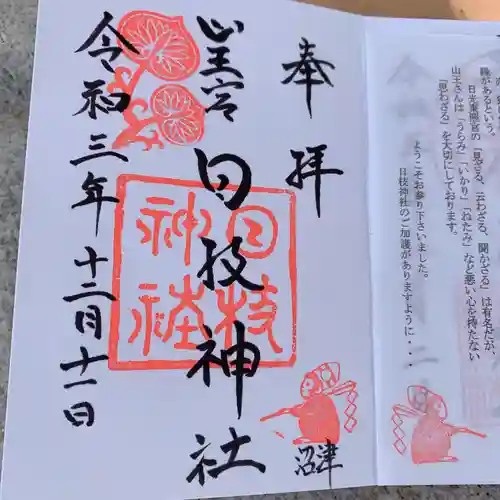 奉拝
山王宮
日枝神社
沼津
令和三年十二月十一日
日枝
神社
縁があるという。
日光東照宮の「見ざる、云わざる、聞かざる」は有名だが
山王さんは「うらみ」「いかり」「ねたみ」など悪い心を持たない
「思わざる」を大切にしております。
ようこそお参り下さいました。
日枝神社のご加護がありますように・・・